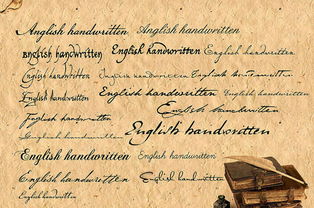 Anglish handwritten Anglish handwritten
English handwritten English handwritten English handwritten
English handwritten English handwritten
English handwritten English handwritten English handwritten
English handwritten
English handwritten
English handwritten
English handwritten
English handwritten English handwritten
English handwritten English handwritten
English handwritten